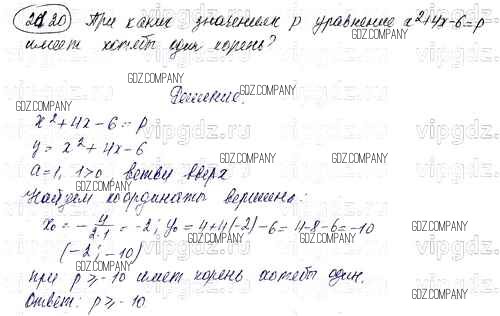 21.20 При каких значениях p уравнение x²+4x-6=p
имеет хотябы один корень?
Решение.
x²+4x-6=p
y=x²+4x-6
a=1, 1>0 ветви вверх
Найдем координаты вершины:
x₀=-4/2·1=-2; y₀=4+4(-2)-6=4-8-6=-10
(-2; -10)
при p≥-10 имет корень хотябы один.
Ответ: p≥-10
GDZ.COMPANY
vipgdz.ru